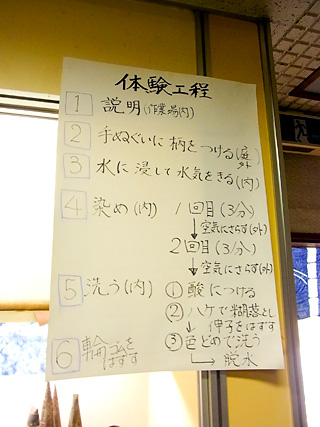 体験工程
1 説明(作業場内)
2 手ぬぐいに柄をつける(庭外)
3 水に浸して水気をきる(内)
4 染め(内) 1回目(3分)
↓空気にさらす(外)
2回目(3分)
↓空気にさらす(外)
5 洗う(内) ①酸につける
②ハケで糊落とし
↓伸子をはずす
6 輪ゴムをはずす ③色どめで洗う
↳脱水